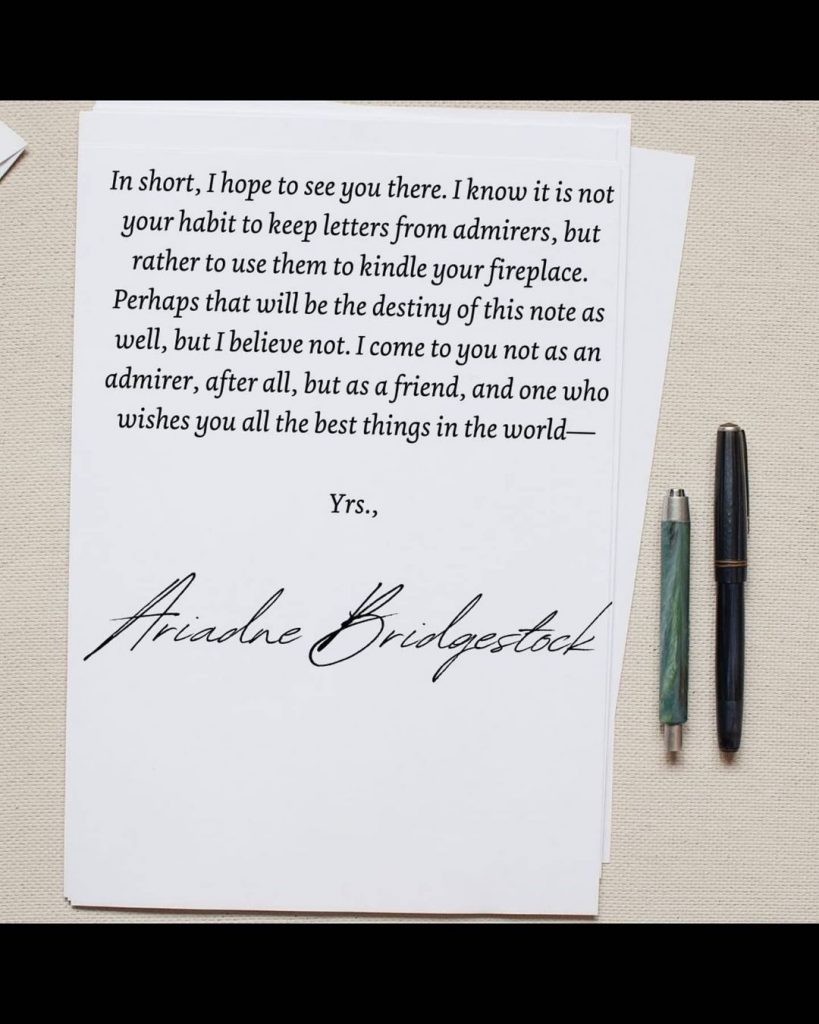 In short, I hope to see you there. I know it is not
your habit to keep letters from admirers, but
rather to use them to kindle your fireplace.
Perhaps that will be the destiny of this note as
well, but I believe not. I come to you not as an
admirer, after all, but as a friend, and one who
wishes you all the best things in the world—
Yrs.,
Ariadne Bridgestock